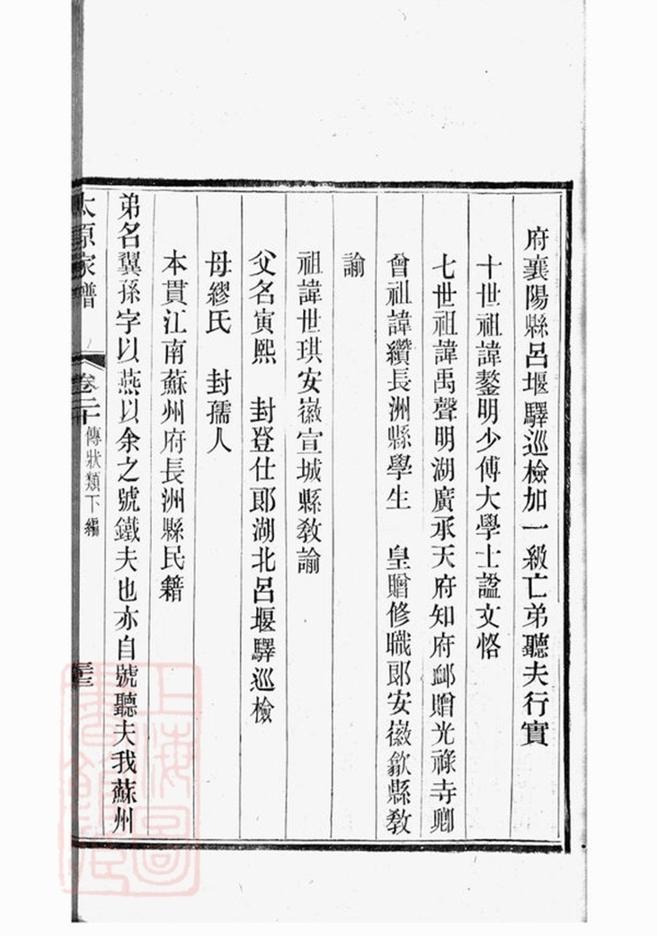 府襄陽縣呂堰驛巡檢加一級亡弟聽夫行實
十世祖諱鏊明少傅大學士諡文恪
七世祖諱禹聲明湖廣承天府知府卹贈光祿寺卿
曾祖諱纘長洲縣學生　皇贈修職郎安徽歙縣教
諭
祖諱世琪安徽宣城縣教諭
父名寅熙　封登仕郎湖北呂堰驛巡檢
母繆氏　封孺人
本貫江南蘇州府長洲縣民籍
弟名翼孫字以燕以余之號鐵夫也亦自號聽夫我蘇州
太原家譜　卷二十傳狀類下編
上海圖書館藏